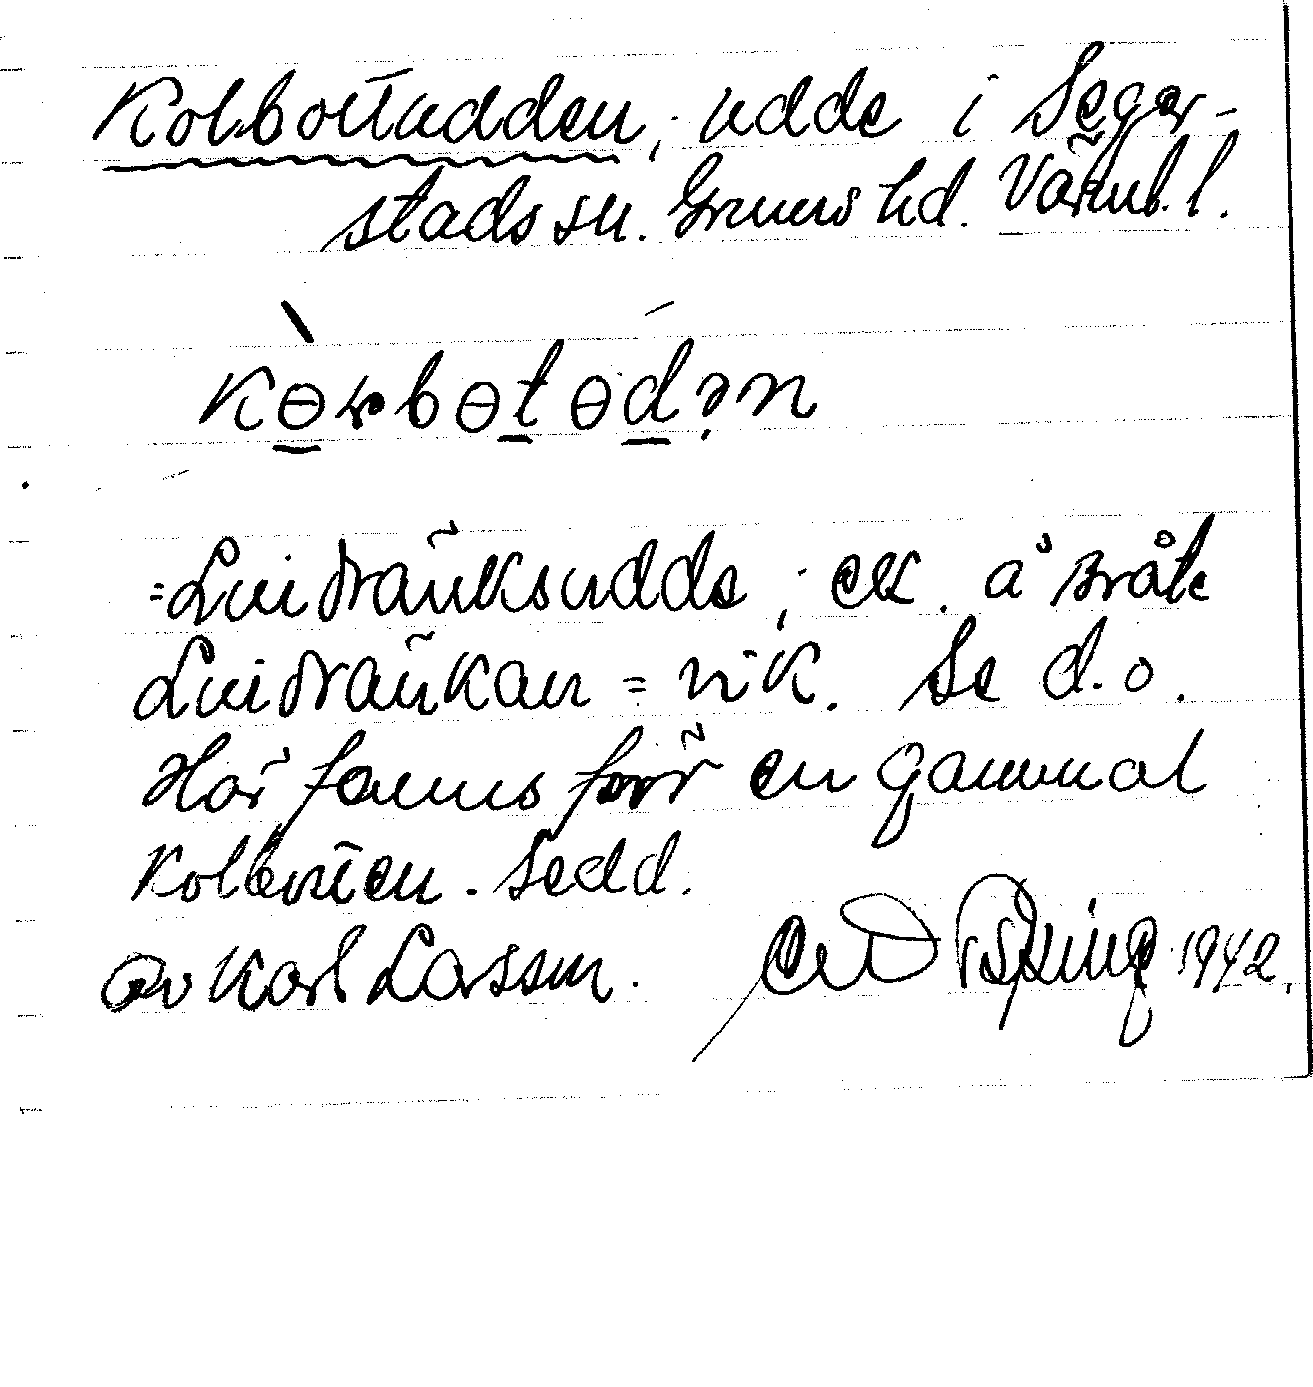 Kolbottudden, udde i Seger-
stads sn. Grums hd. Värml. l.
kθ̀ɽbθtθdən
= Lindränksudde, ek. å Bråte
Lindränkan = vik. Se d.o.
Här fanns förr en gammal
Kolbotten. Sedd.
av Karl Larsson. 1942.